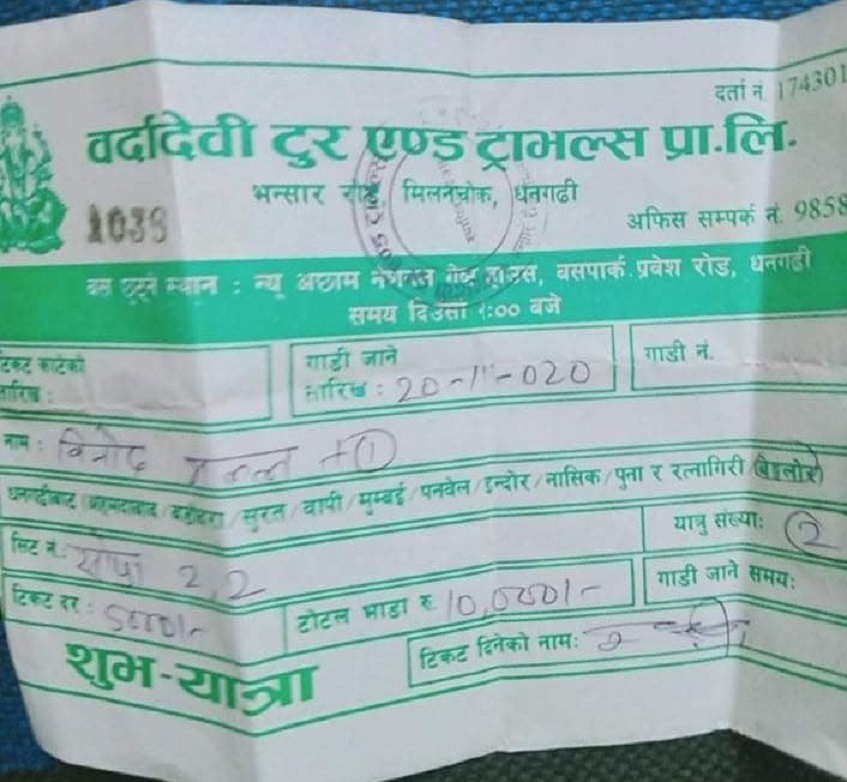 दर्ता नं. 174301
वर्ददेवी टुर एण्ड ट्राभल्स प्रा.लि.
भन्सार रोड मिलनचोक, धनगढी
1038
अफिस सम्पर्क नं. 9858
बस छुट्ने स्थान : न्यू अछाम नेशनल गेष्ट हाउस, बसपार्क प्रवेश रोड, धनगढी
समय दिउसो १:०० बजे
टिकट काटेको
तारिख :
गाडी जाने
तारिख : 20-11-020
गाडी नं.
नाम : विनोद +1
धनगढीबाट अहमदाबाद/बडोदरा/सुरत/वापी/मुम्बई/पनवेल/इन्दोर/नासिक/पुना र रत्नागिरी बेङलोर
यात्रु संख्या: 2
सिट नं.: सोफा 2,2
टिकट दर : 5000/-
टोटल भाडा रु 10,000/-
गाडी जाने समय:
शुभ-यात्रा
टिकट दिनेको नाम: